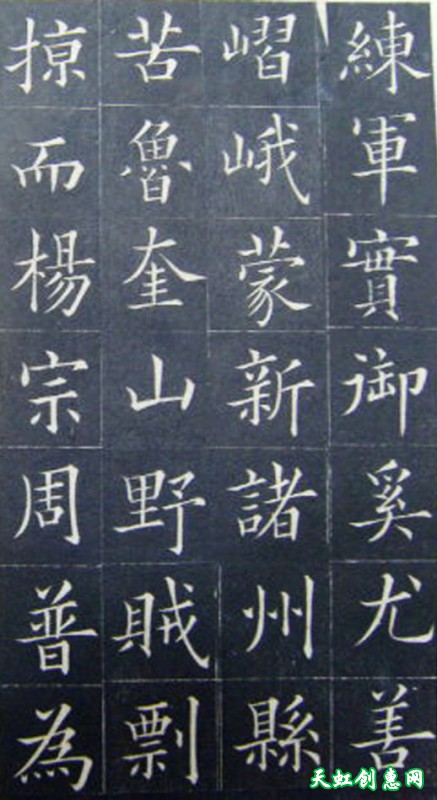 練軍實御奚尤善
嶍峨蒙新諸州縣
苦魯奎山野賊剽
掠而楊宗周普為
天虹创惠网